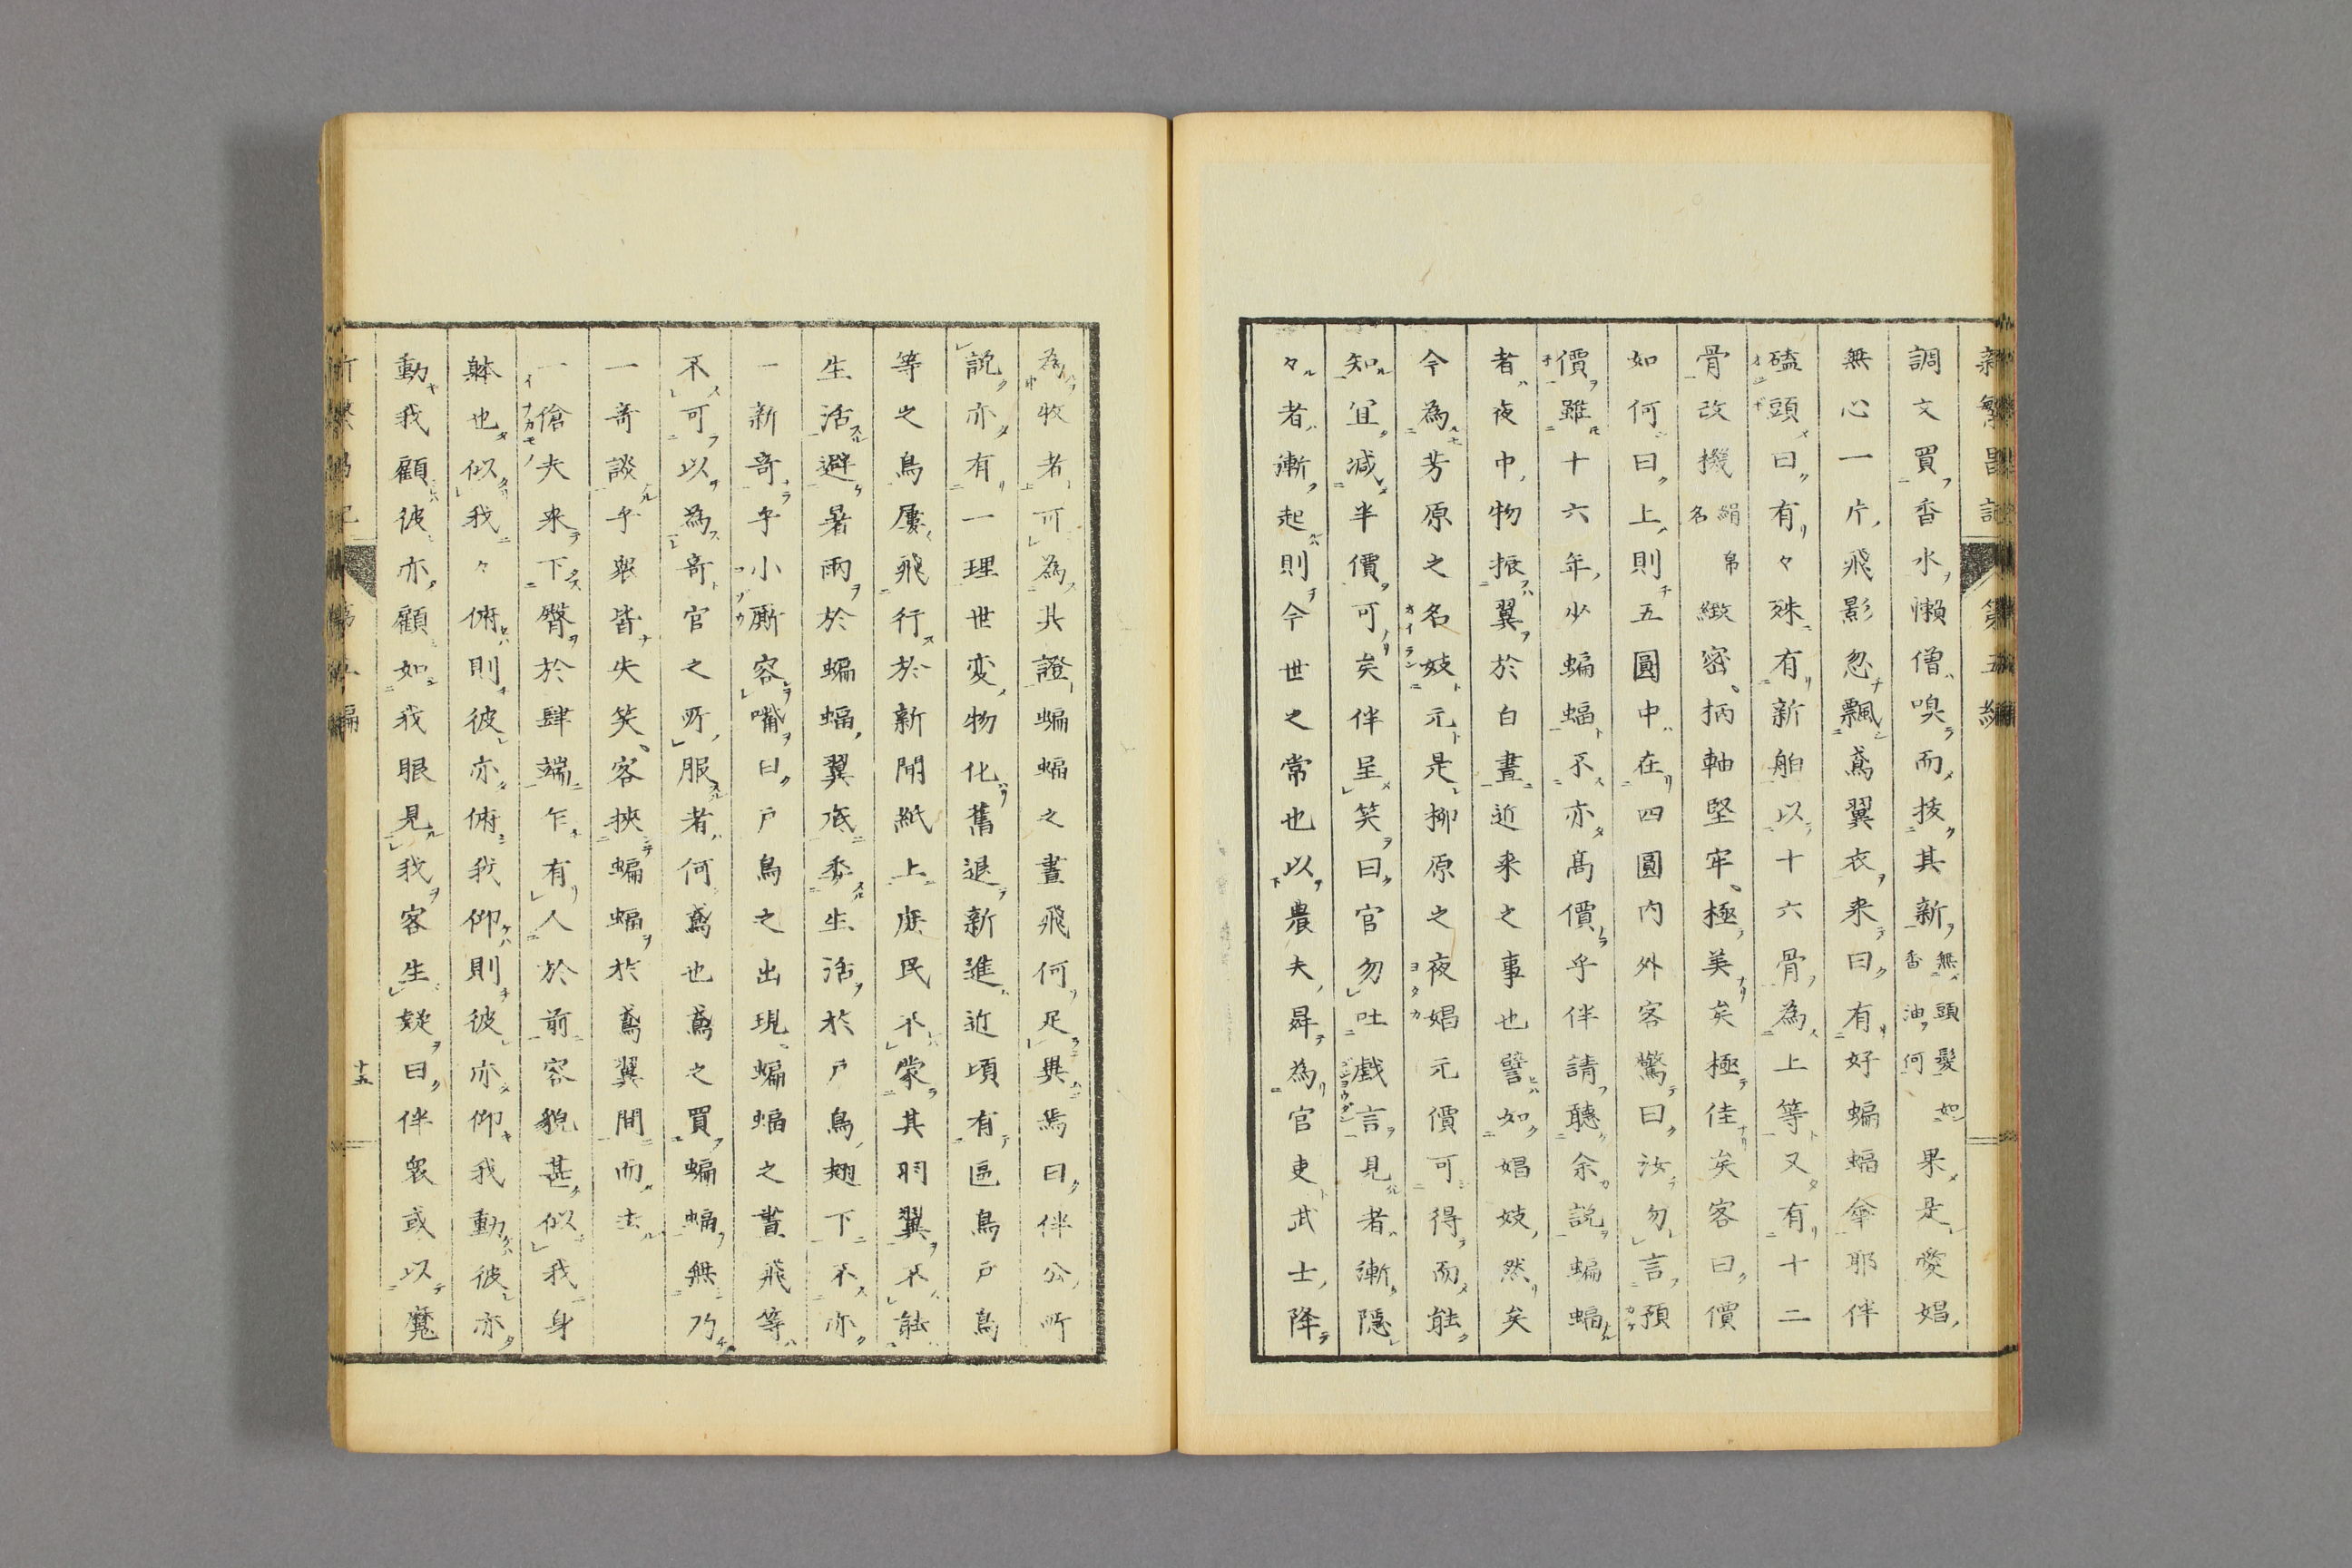 新繁昌記 第五編
調文買香水懶僧嗅而拔其新無頭髮如香油何果是愛娼
無心一片飛影忽飄鳶翼衣来曰有好蝙蝠傘耶伴
磕頭曰有々殊有新舶以十六骨為上等又有十二
骨改機絹帛名緻密、柄軸堅牢、極美矣極佳矣客曰價
如何曰上則五圓中在四圓内外客驚曰汝勿言預
價雖十六年少蝙蝠不亦高價乎伴請聽余説蝙蝠
者夜中物振翼於白晝近来之事也譬如娼妓然矣
今為芳原之名妓元是柳原之夜娼元價可得而能
知宜減半價可矣伴呈笑曰官勿吐戯言見者漸隱
々者漸起則今世之常也以農夫舜為官吏武士降
為牧者可為其證蝙蝠之晝飛何足異焉曰伴公所
説亦有一理世变物化舊退新進近頃有區鳥戸鳥
等之鳥屢飛行於新聞紙上庶民不蒙其羽翼不能
生活避暑雨於蝙蝠翼底委生活於戸鳥翅下不亦
一新奇乎小廝容嘴曰戸鳥之出現蝙蝠之晝飛等
不可以為奇官之所服者何鳶也鳶之買蝙蝠無乃
一奇談乎衆皆失笑、客挾蝙蝠於鳶翼間而去
一傖夫来下臀於肆端乍有人於前容貌甚似我身
躰也似我々俯則彼亦俯我仰則彼亦仰我動彼亦
動我顧彼亦顧如我眼見我客生疑曰伴衆或以魔
十五